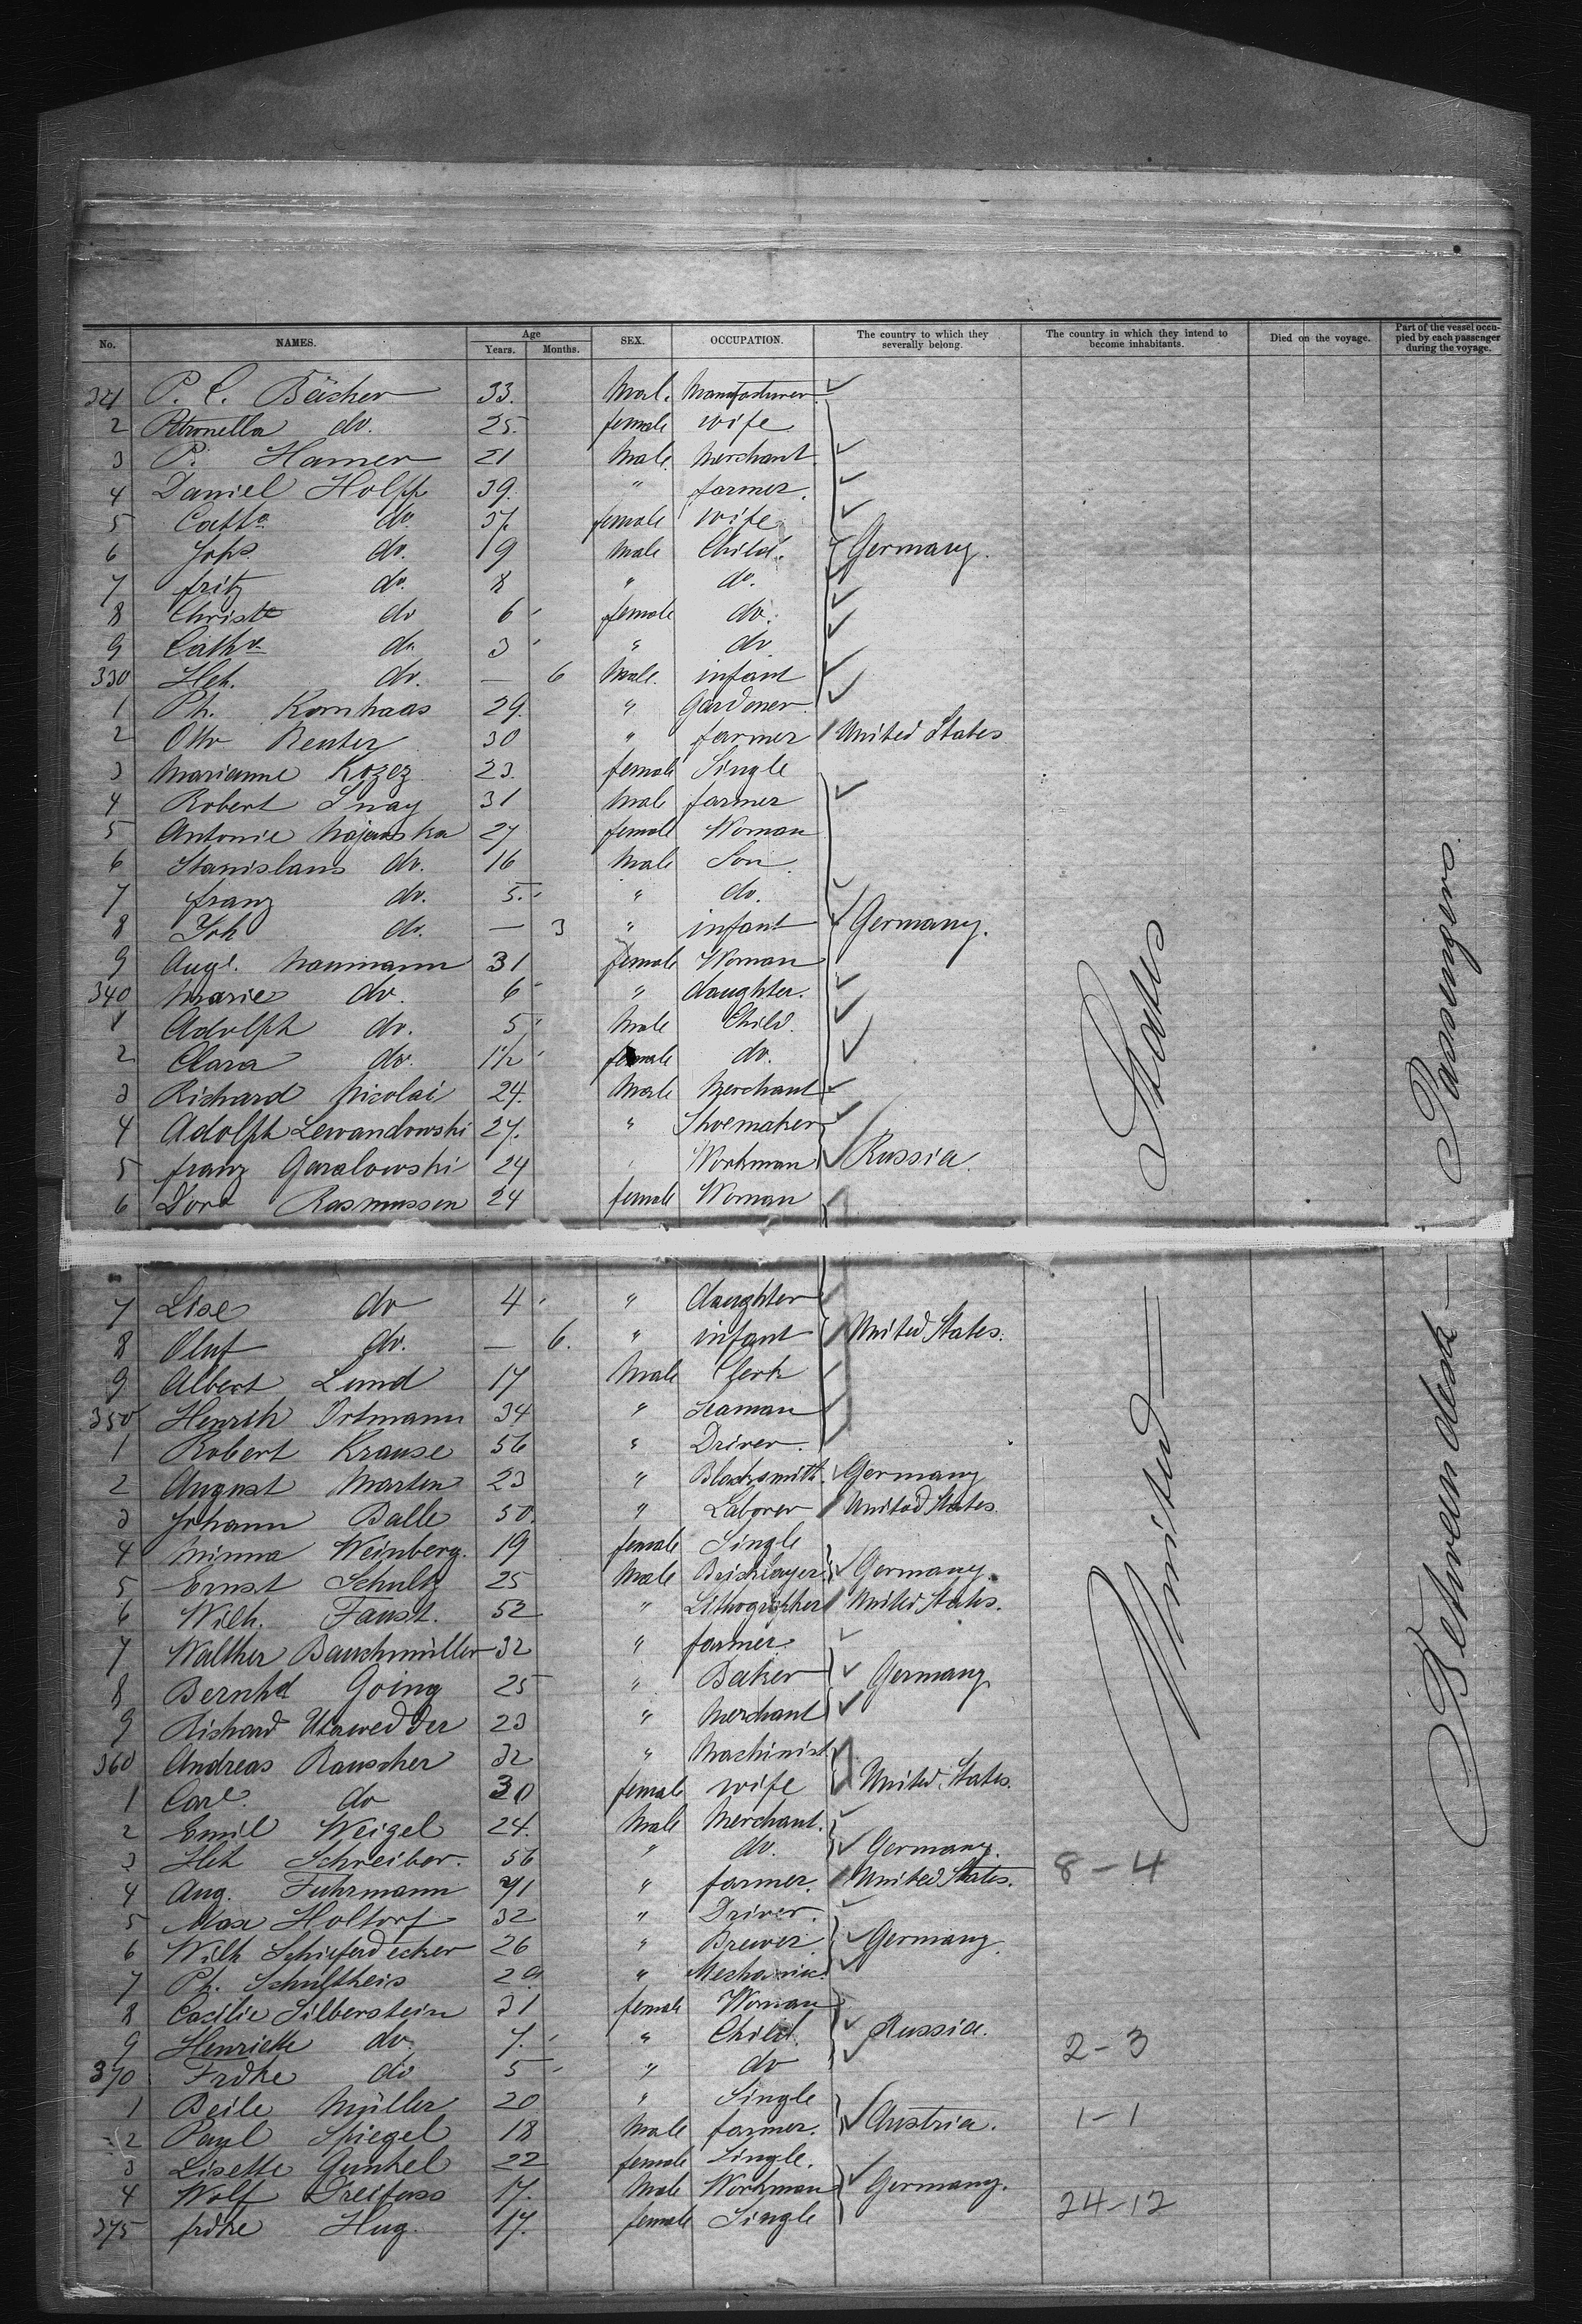 No. NAMES. Age Years. Months. SEX. OCCUPATION. The country to which they severally belong. The country in which they intend to become inhabitants. Died on the voyage. Part of the vessel occupied by each passenger during the voyage.
321 P. C. Bäscher 33. Mal. Manufacturer.
2 Petronella do. 25. female wife
3 P. Hamer 21 Male. Merchant.
4 Daniel Holpp 39. " farmer.
5 Cath. do. 37. female wife
6 Johs do. 19 Male Child. Germany.
7 fritz do. 8 " do.
8 Christe do 6 female do.
9 Cath. do. 3 " do
330 Hch. do. — 6 Male. infant
1 Ph. Kornhaas 29. " Gardener.
2 Otto Reuter 30 " farmer United States
3 Marianne Kozez 23. female Single
4 Robert Snay 31 Male farmer
5 Antonie Majewska 27 female Woman
6 Stanislaus do. 16 Male Son
7 franz do. 5. " do.
8 Joh do. — 3 " infant Germany.
9 Auge. Naumann 31 female Woman
340 Marie do. 6 " daughter.
1 Adolph do. 5 Male Child.
2 Clara do. 1½ female do.
3 Richard Nicolai 24. Male Merchant
4 Adolph Lewandowski 27. " Shoemaker
5 franz Garalowski 24 Workman Russia.
6 Dora Rasmussen 24 female Woman
7 Lise do 4 " daughter
8 Oluf do. — 6. " infant United States.
9 Albert Lund 17 Male Clerk
350 Henrik Ortmann 34 " Seaman
1 Robert Krause 56 " Driver.
2 August Marten 23 " Blacksmith. Germany
3 Johann Balle 50. " Laborer United States.
4 Minna Weinberg. 19 female Single
5 Ernst Schultz 25 Male Bricklayer Germany.
6 Wilh. Faust. 52 " Lithographer United States.
7 Walther Bauschmüller 32 " farmer.
8 Bernhd Going 25 " Baker Germany
9 Richard Uterwedder 23 " Merchant
360 Andreas Rauscher 32 " Machinist
1 Carl. do 30 female wife United States.
2 Emil Weigel 24. Male Merchant.
3 Hch Schreiber. 56 " do. Germany.
4 Aug. Fuhrmann 41 " farmer. United States. 8-4
5 Max Holtorf 32 " Driver.
6 Wilh Schieferdecker 26 " Brewer Germany.
7 Ph. Schultheis 29 " Mechanic.
8 Caecilie Silberstein 31 female Woman
9 Henriette do. 7. " Child. Russia. 2-3
370 Frdke do 5 " do
1 Beile Müller 20 " Single
2 Paul Spiegel 18 Male farmer. Austria. 1-1
3 Lisette Gunkel 22 female Single.
4 Wolf Dreifuss 17. Male Workman Germany. 24-12
375 frdke Hug. 17. female Single
United States
Between deck Passengers.